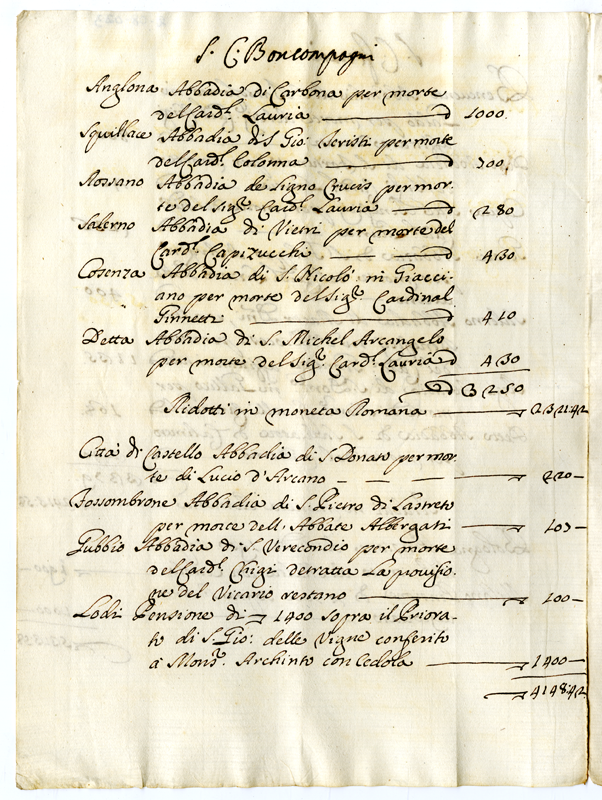 S. C. Boncompagni
Anglona Abbadia di Carbona per morte
del Card.l Lauria — d 1000
Squillace Abbadia di S. Gio: Teristi per morte
del Card.l Colonna — d 700
Rossano Abbadia de Signo Crucis per mor-
te del Sig.r Card.l Lauria — d 280
Salerno Abbadia di Vietri per morte del
Card.l Capizucchi — d 430
Cosenza Abbadia di S. Nicolò in Giacci-
ano per morte del Sig.r Cardinal
Ginnetti — d 410
Detta Abbadia di S. Michel Arcangelo
per morte del Sig.r Card.l Lauria d 430
d 3250
Ridotti in moneta Romana — 2321:42
Città di Castello Abbadia di S. Donato per mor-
te di Lucio d'Arcano — 220 —
Fossombrone Abbadia di S. Pietro di Lastreto
per morte dell' Abbate Albergati — 107 —
Gubbio Abbadia di S. Verecondio per morte
del Card.l Chigi detratta la provisio-
ne del Vicario restano — 100 —
Lodi Pensione di 1400 sopra il Priora-
to di S. Gio: delle Vigne conferito
à Mons.r Archinto con Cedola — 1400 —
4148:42